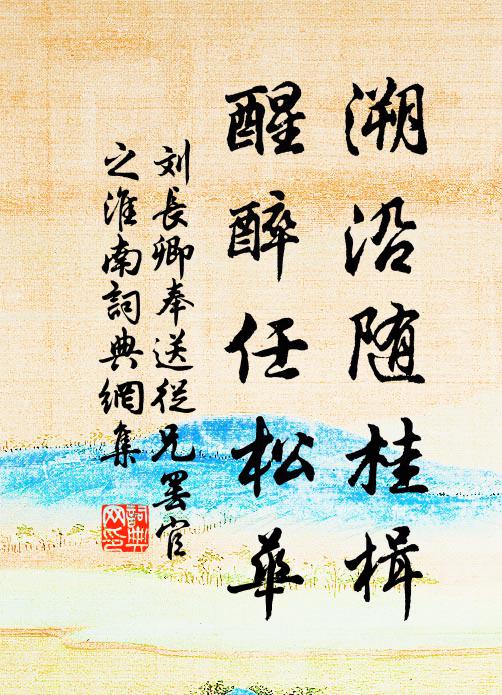 溯沿随桂楫
醒醉任松華
刘長卿奉送從兄罢官
之淮南詞典網集
詞典網印